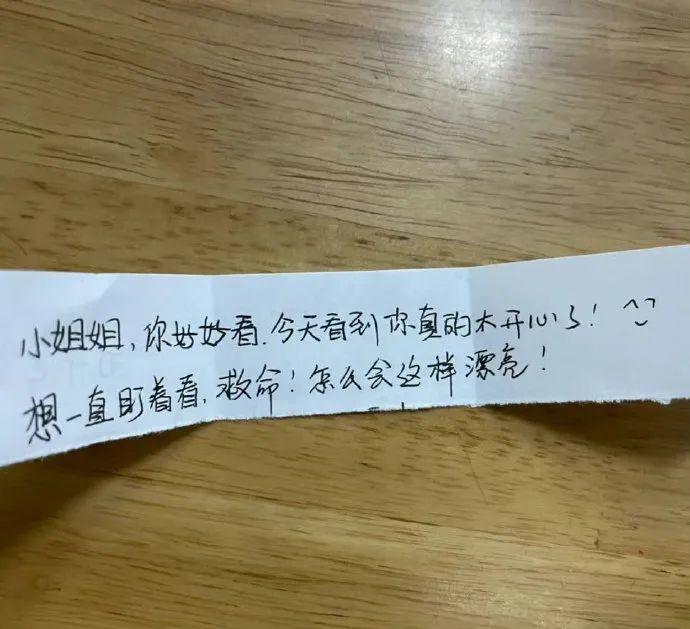 小姐姐,你好好看.今天看到你真的太开心了! ^^
想一直盯着看,救命!怎么会这样漂亮!